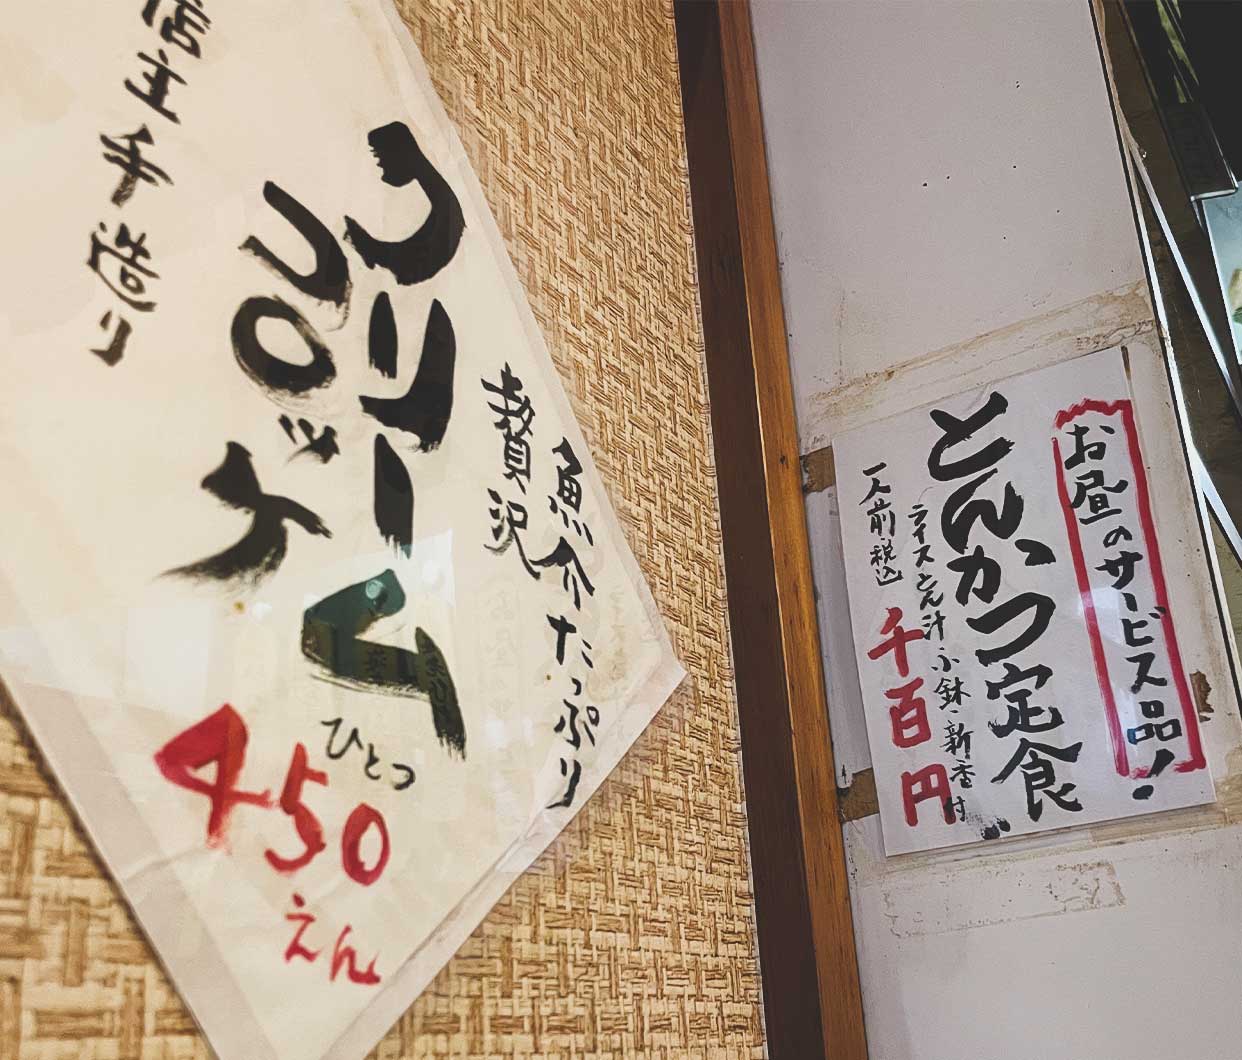 魚介たっぷり
贅沢
クリーム
コロッケ
ひとつ
450
えん
店主手造り
お昼のサービス品!
とんかつ定食
ライスとん汁小鉢新香付
一人前税込
千百円